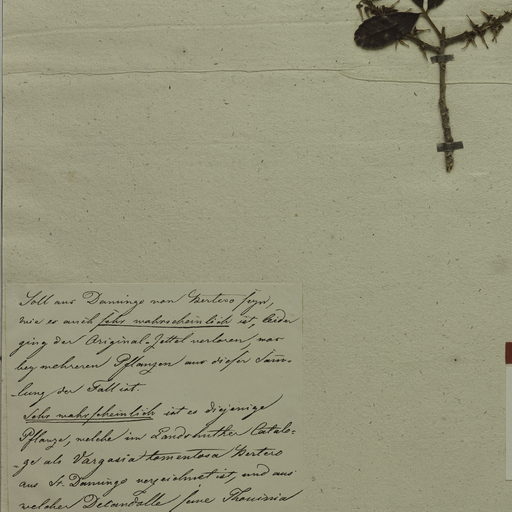 Soll aus Domingo von Bertero seyn,
wie es auch sehr wahrscheinlich ist, leider
ging der Original-Zettel verloren, was
bey mehreren Pflanzen aus dieser Samm-
lung der Fall ist.
Sehr wahrscheinlich ist es diejenige
Pflanze, welche im Landshuther Catalo-
-ge als Vargasia tomentosa Bertero
aus St. Domingo verzeichnet ist, und aus
welcher Decandolle seine Thouinia